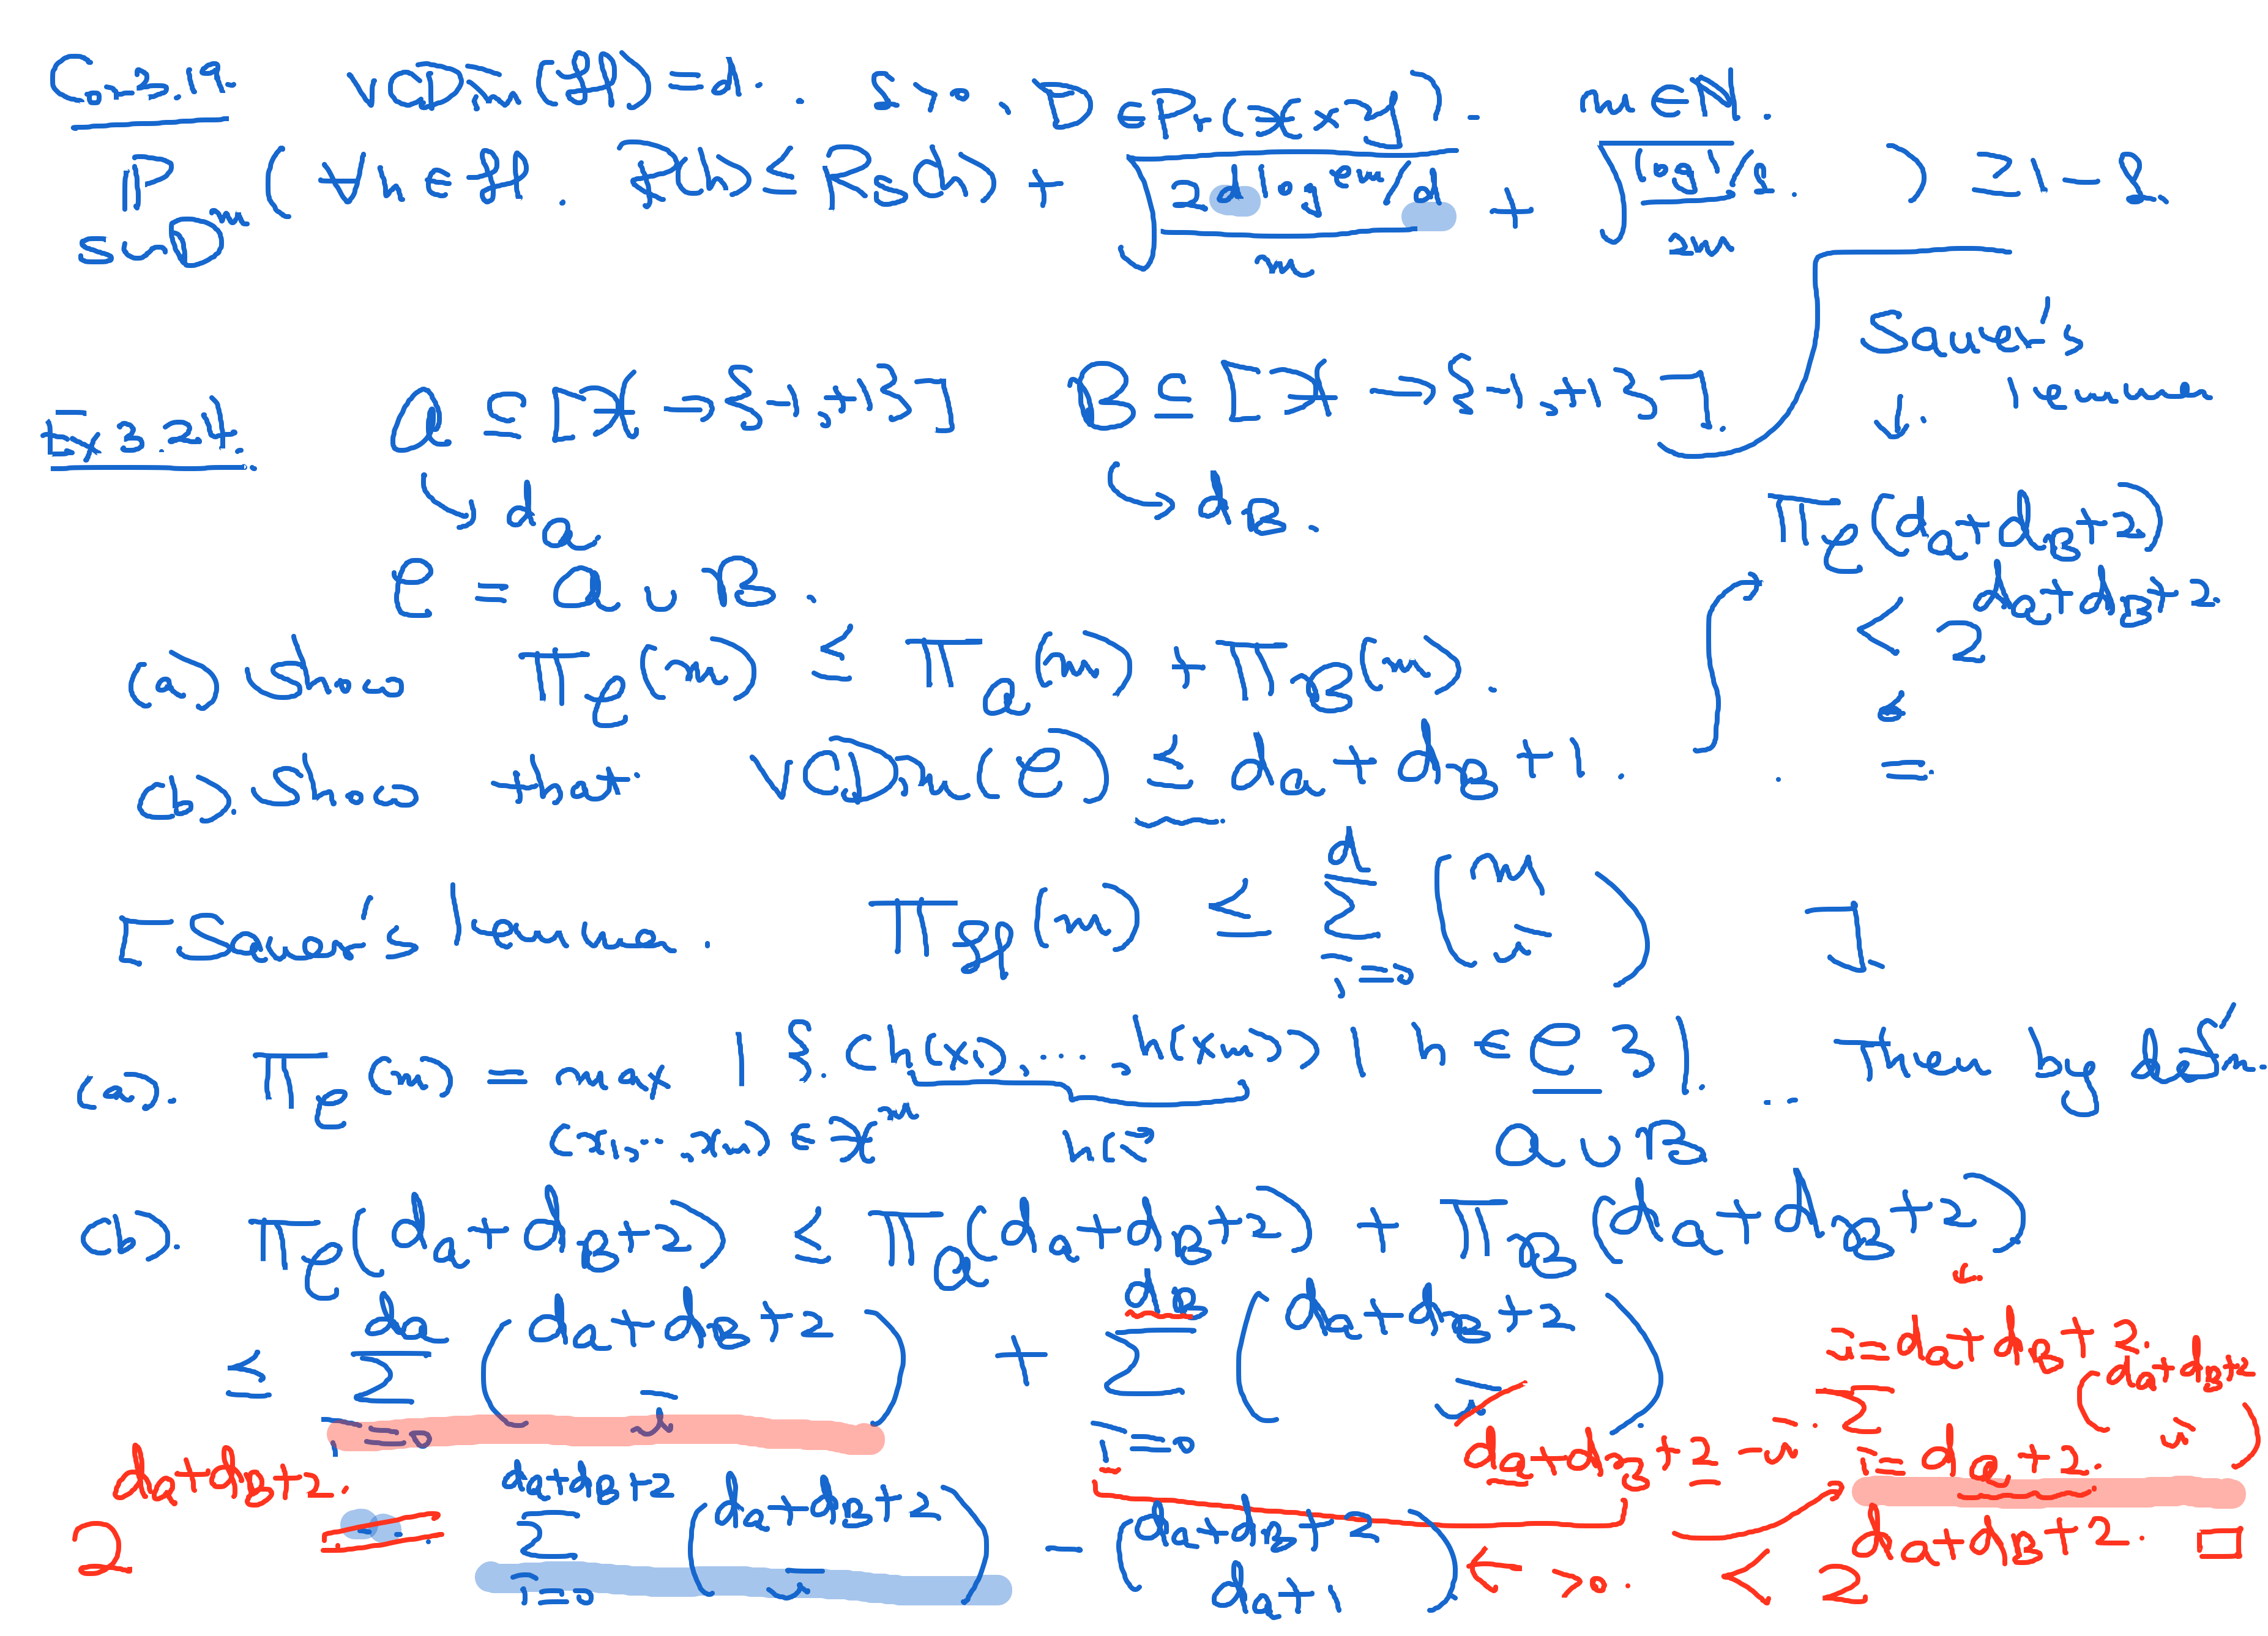 Cor 3.19. VCDim(H) = d. δ > 0, D ∈ Pr(X × Y). m ∈ N.
P_{S∼D^m} ( ∀h ∈ H. R(h) ≤ R̂_S(h) + √(2d log em/d / m) + √(log 1/δ / 2m) ) ≥ 1 - δ.
Sauer's lemma
↓.
Ex 3.24. A ⊆ [X → {-1,+1}] B ⊆ [X → {-1,+1}].
↳ d_A ↳ d_B.
C = A ∪ B.
Π_C(d_A + d_B + 2)
< 2^{d_A + d_B + 2}.
(a) Show Π_C(m) ≤ Π_A(m) + Π_B(m).
(b). Show that VCDim(C) ≤ d_A + d_B + 1.
[Sauer's lemma. Π_H(m) ≤ Σ_{i=0}^{d} (m i) ]
(a). Π_C(m) = max_{(x_1, ..., x_m) ∈ X^m} | { (h(x_1), ..., h(x_m)) | h ∈ C } |. ... then by defn.
A ∪ B
(b). Π_C(d_A + d_B + 2) ≤ Π_A(d_A + d_B + 2) + Π_B(d_A + d_B + 2)
≤ Σ_{i=0}^{d_A} (d_A + d_B + 2 i) + Σ_{i=0}^{d_B} (d_A + d_B + 2 i)
d_A + d_B + 2 - i
Σ_{i=d_A+2}^{i=d_A+d_B+2} (d_A + d_B + 2 i)
2^{d_A + d_B + 2}. = Σ_{i=0}^{d_A+d_B+2} (d_A + d_B + 2 i) - (d_A + d_B + 2 d_A + 1) ← > 0. < 2^{d_A + d_B + 2}. □